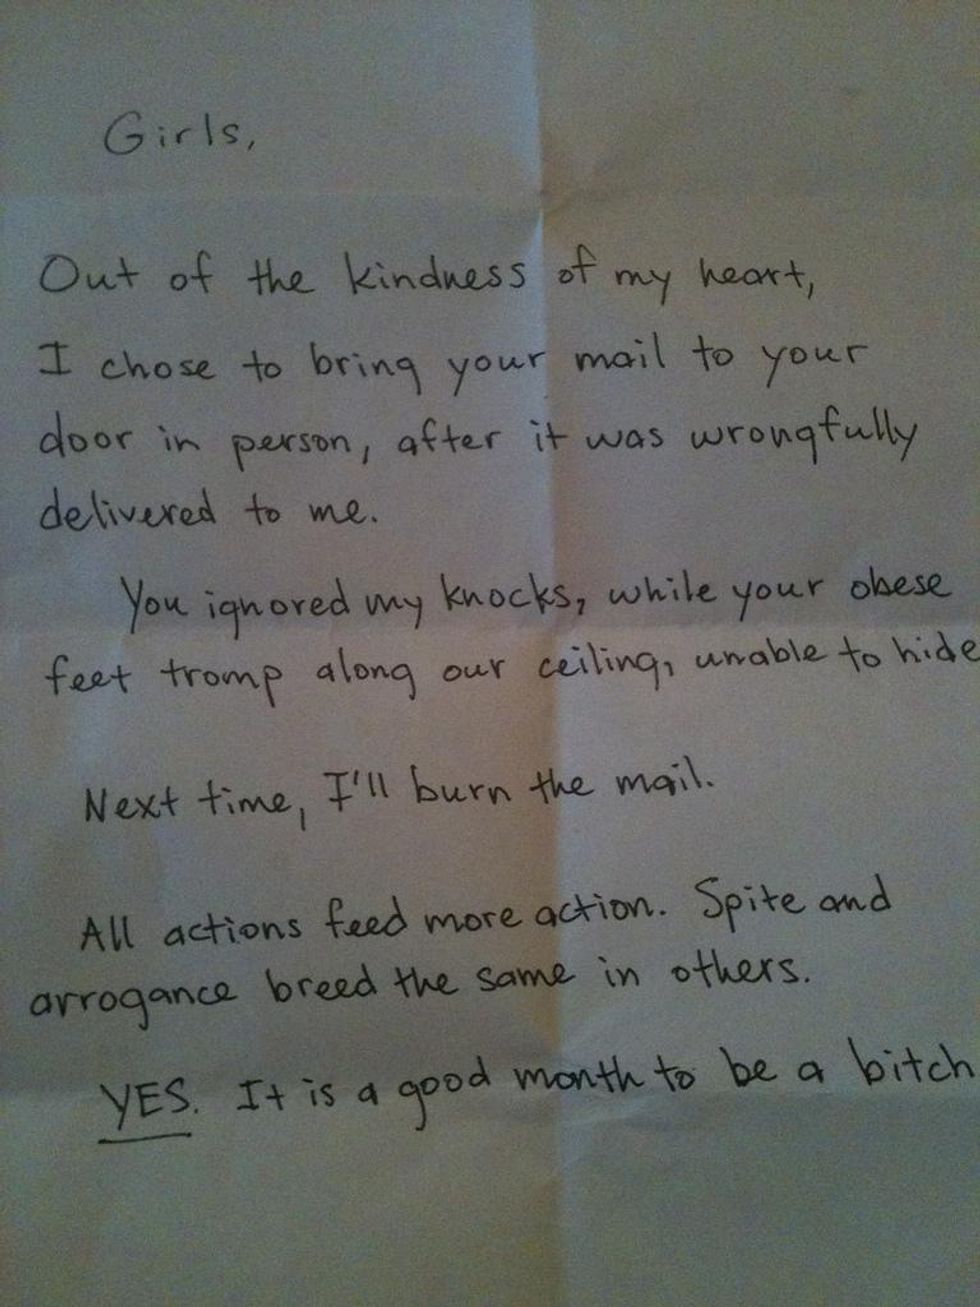 Girls,
Out of the kindness of my heart,
I chose to bring your mail to your
door in person, after it was wrongfully
delivered to me.
You ignored my knocks, while your obese
feet tromp along our ceiling, unable to hide
Next time, I'll burn the mail.
All actions feed more action. Spite and
arrogance breed the same in others.
YES. It is a good month to be a bitch